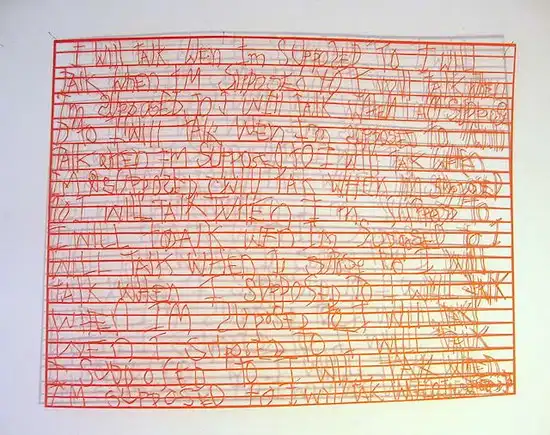 I WILL TALK WEN Im SUPPOSED TO I WILL
TALK WHEN I'M SUPPOSED TO I WILL TALK WHEN
I'm SUPPOSED TO I WILL TALK WHEN I AM SUPPOSE
D TO I WILL TALK WEN I'm SUPPOSED TO I WILL
TALK WHEN I'M SUPPOSED TO I WILL TALK WHEN
I'M SUPPOSED I WILL TALK WHEN I'M SUPPOSED
TO I WILL TALK WHEN I'm SUPPOSED TO I
I WILL TALK WEN I'm SUPOSED TO I
WILL TALK WHEN TO I WILL
TALK WHEN I SUPPOSED TO I WILL TALK
WHEN I'M SUPPOSED TO I WILL TALK
WEN I SUPPOSED TO I WILL TALK
I SUPPOSED TO I WILL TALK WHEN
I'M SUPPOSED TO I WILL TALK WHEN